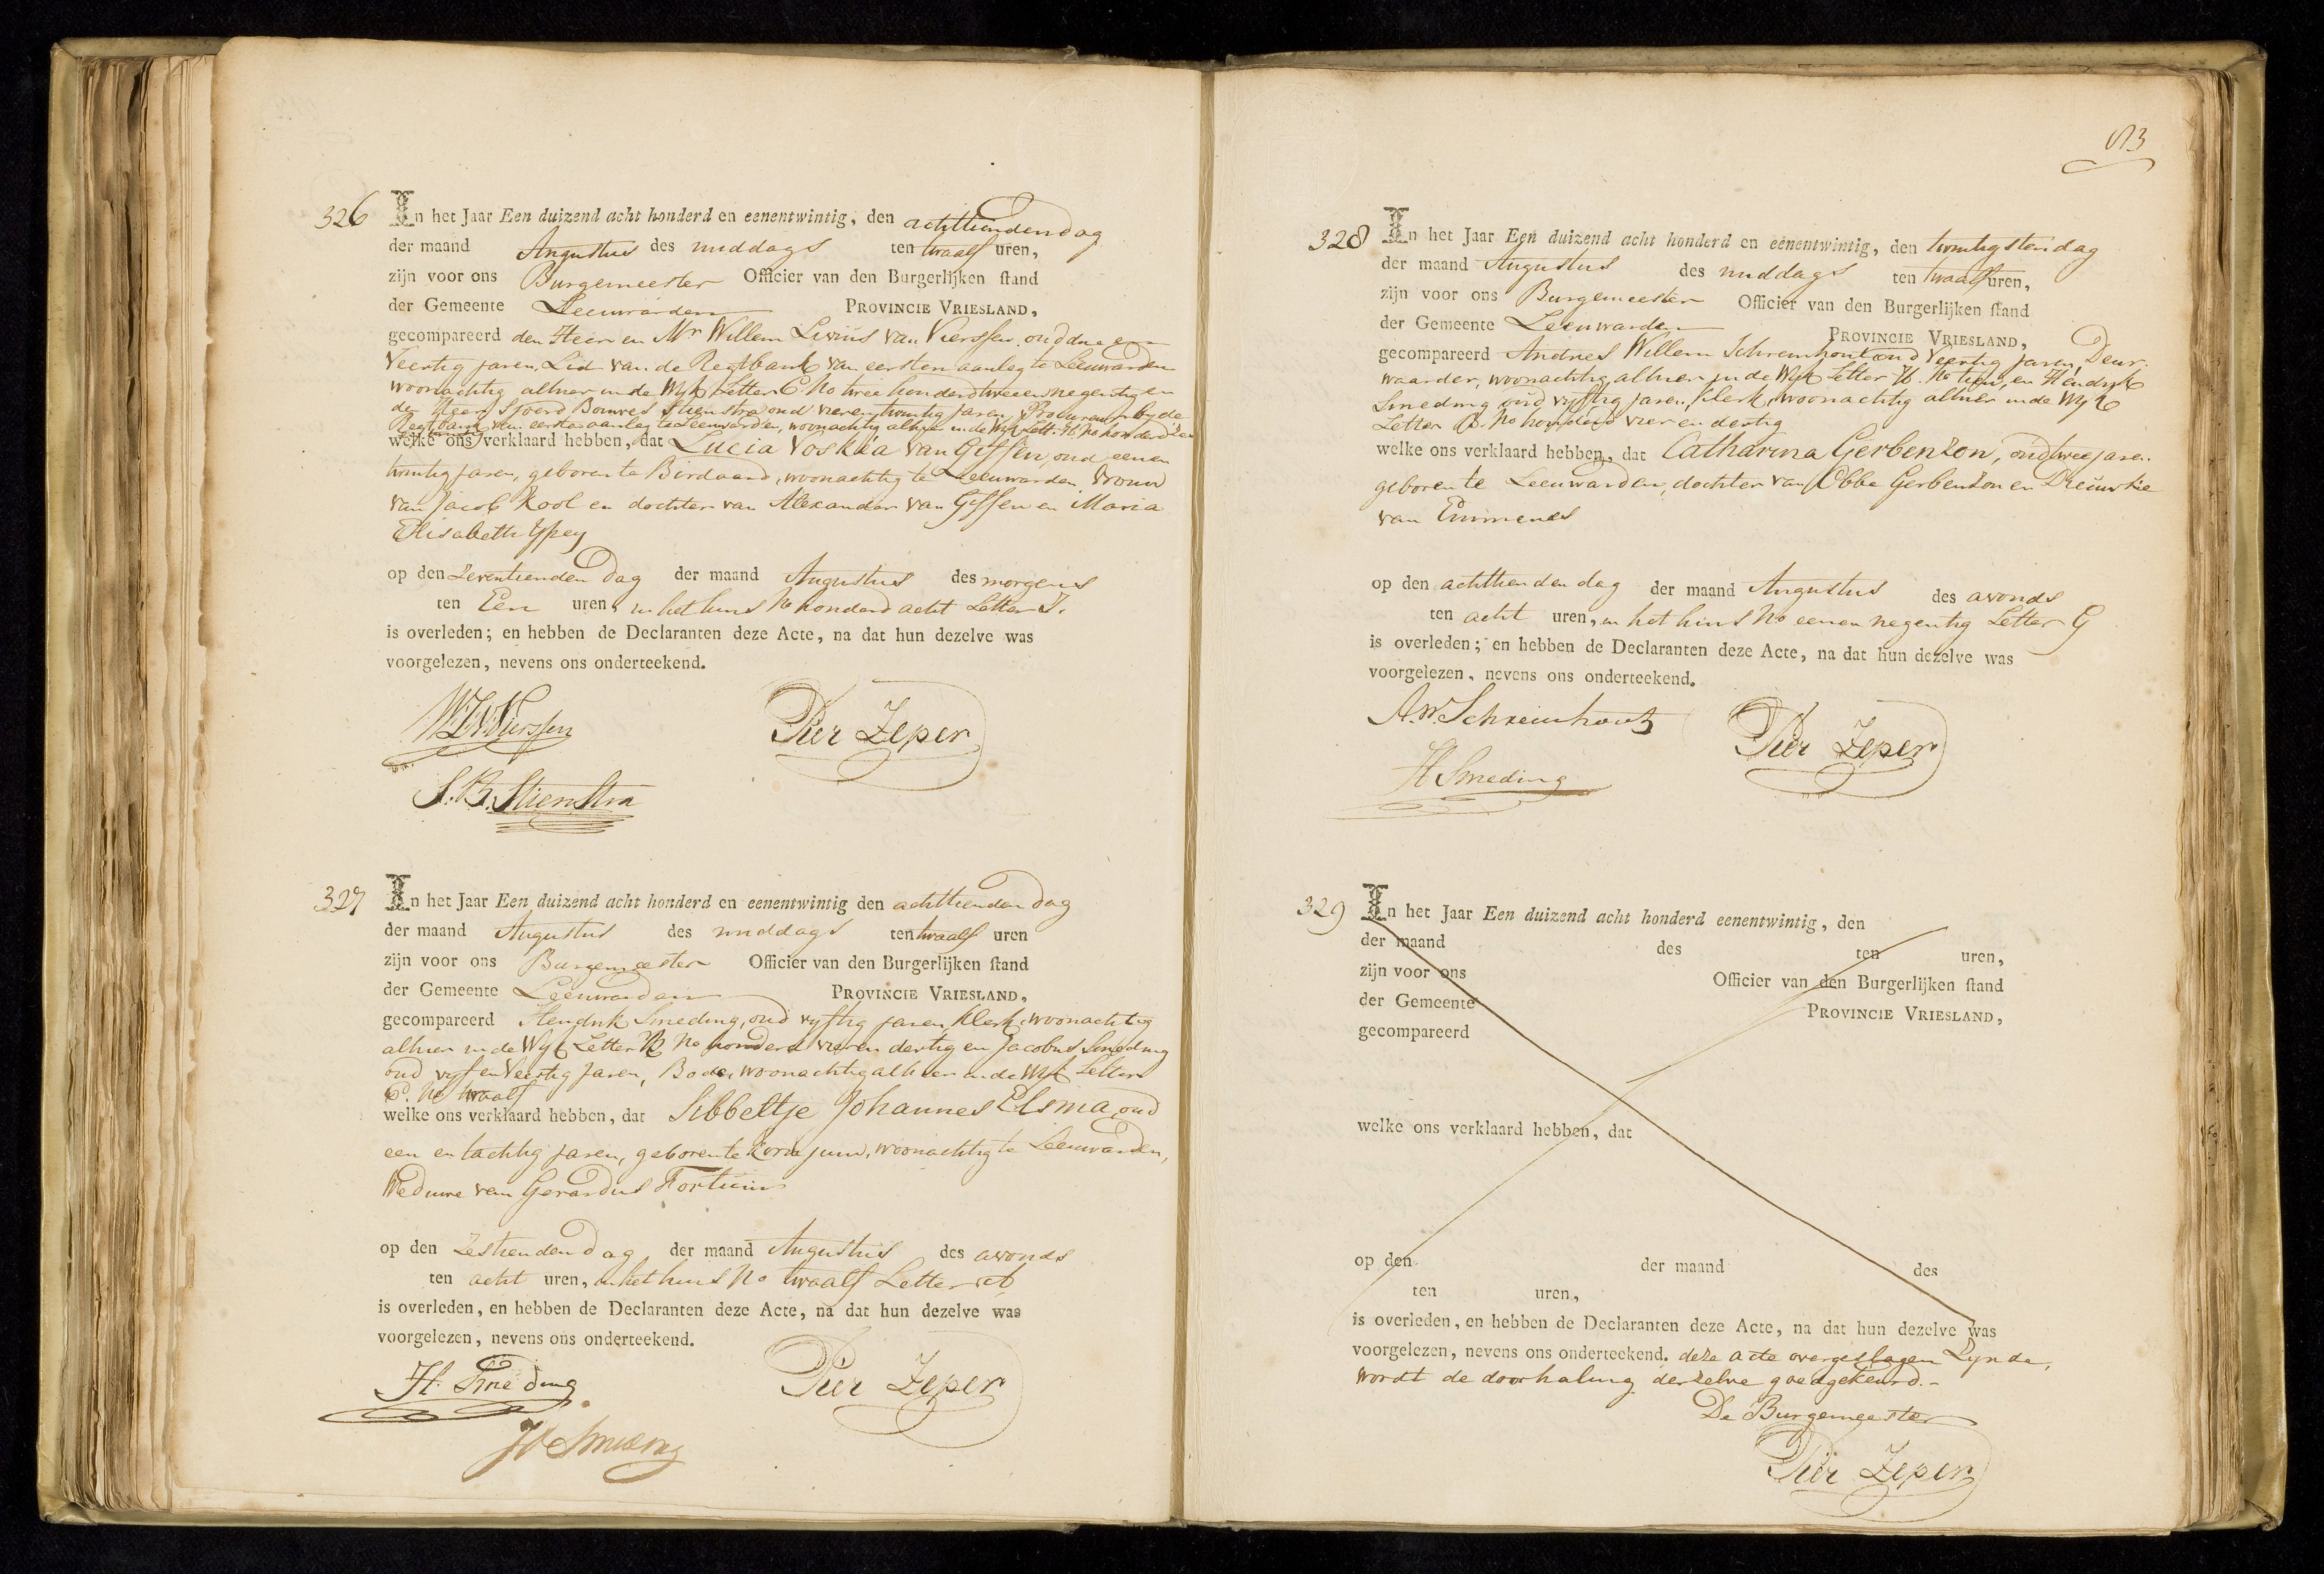 326 In het Jaar Een duizend acht honderd en eenentwintig, den achttienden dag
der maand Augustus des middags ten twaalf uren,
zijn voor ons Burgemeester Officier van den Burgerlijken stand
der Gemeente Leeuwarden PROVINCIE VRIESLAND,
gecompareerd den Heer en Mr Willem Livius van Vierssen oud drie en
Veertig jaren, Lid van de Regtbank van eersten aanleg te Leeuwarden
woonachtig alhier in de Wyk Letter C No twee honderd twee en negentig en
de Heer Sjoerd Bouwes Stienstra oud vierentwintig jaren, Procureur by de
Regtbank van eersten aanleg te Leeuwarden, woonachtig alhier in de Wyk Lett. H. No honderd
welke ons verklaard hebben, dat Lucia Voskea van Giffen, oud een en
twintig jaren, geboren te Birdaard, woonachtig te Leeuwarden Vrouw
van Jacob Kool en dochter van Alexander van Giffen en Maria
Elisabeth Ypey
op den Zeventienden dag der maand Augustus des morgens
ten Een uren, in het huis No honderd acht Letter I.
is overleden; en hebben de Declaranten deze Acte, na dat hun dezelve was
voorgelezen, nevens ons onderteekend.
WLvVierssen Pier Zeper
S.B. Stienstra
327 In het Jaar Een duizend acht honderd en eenentwintig den achttienden dag
der maand Augustus des middags ten twaalf uren
zijn voor ons Burgemeester Officier van den Burgerlijken stand
der Gemeente Leeuwarden PROVINCIE VRIESLAND,
gecompareerd Hendrik Smeding, oud vyftig jaren, Klerk, woonachtig
alhier in de Wyk Letter No honderd vier en dertig en Jacobus Smeding
oud vyf en Veertig jaren, Bode, woonachtig alhier in de Wyk Letter
No twaalf
welke ons verklaard hebben, dat Sibbeltje Johannes Elsma, oud
een en tachtig jaren, geboren te Kornjum, woonachtig te Leeuwarden,
Weduwe van Gerardus Fortuin
op den Zestienden dag der maand Augustus des avonds
ten acht uren, in het huis No twaalf Letter
is overleden, en hebben de Declaranten deze Acte, na dat hun dezelve was
voorgelezen, nevens ons onderteekend.
H. Smeding Pier Zeper
Js Smeding
513
328 In het Jaar Een duizend acht honderd en eenentwintig, den twintigsten dag
der maand Augustus des middags ten twaalf uren,
zijn voor ons Burgemeester Officier van den Burgerlijken stand
der Gemeente Leeuwarden PROVINCIE VRIESLAND,
gecompareerd Andries Willem Schreinhout oud Veertig jaren, Deur-
waarder, woonachtig alhier in de Wyk Letter H. No tien, en Hendrik
Smeding oud vyftig jaren, Klerk, woonachtig alhier in de Wyk
Letter No honderd vier en dertig
welke ons verklaard hebben, dat Catharina Gerbenzon, oud twee jaren
geboren te Leeuwarden, dochter van Ebbe Gerbenzon en Dieuwke
van Emmenes
op den achttienden dag der maand Augustus des avonds
ten acht uren, in het huis No een en negentig Letter G
is overleden; en hebben de Declaranten deze Acte, na dat hun dezelve was
voorgelezen, nevens ons onderteekend.
A.W. Schreinhout Pier Zeper
H Smeding
329 In het Jaar Een duizend acht honderd eenentwintig, den
der maand des ten uren,
zijn voor ons Officier van den Burgerlijken stand
der Gemeente PROVINCIE VRIESLAND,
gecompareerd
welke ons verklaard hebben, dat
op den der maand des
ten uren,
is overleden, en hebben de Declaranten deze Acte, na dat hun dezelve was
voorgelezen, nevens ons onderteekend. deze acte overgeslagen Zynde,
wordt de doorhaling derzelve goedgekeurd.-
De Burgemeester
Pier Zeper